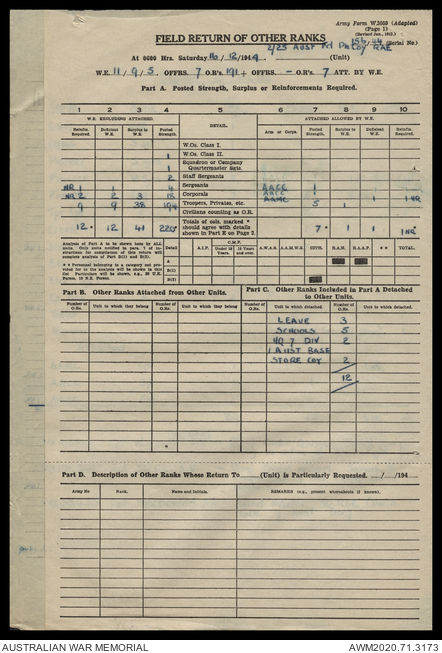 Army Form W.3009 (Adapted)
(Page 1)
FIELD RETURN OF OTHER RANKS
156/44 (Serial No.)
At 0600 Hrs. Saturday 16/12/1944. 2/25 Aust Fd Pk Coy RAE (Unit)
W.E. 11/9/5. OFFRS. 7 O.R's. 191 + OFFRS. – O.R's. 7 ATT. BY W.E.
Part A. Posted Strength, Surplus or Reinforcements Required.
1 2 3 4 5 6 7 8 9 10
W.E. EXCLUDING ATTACHED. ATTACHED ALLOWED BY W.E.
Reinfts. Required. Deficient W.E. Surplus to W.E. Posted Strength DETAIL. Arm or Corps. Posted Strength Surplus to W.E. Deficient W.E. Reinfts. Required.
W.Os. Class I.
1 W.Os. Class II.
1 Squadron or Company Quartermaster Sgts.
2 Staff Sergeants
NR 1 1 4 Sergeants AACC 1
NR 2 2 3 Corporals AACC 1
9 9 38 Troopers, Privates, etc. AAMC 5 1 1 1 NR
Civilians counting as O.R.
12 12 41 220 Totals of cols. marked * should agree with details shown in Part E on Page 3. 7 1 1 1NR
Analysis of Part A to be shown here by ALL units.
Detail A.I.F. C.M.F. Under 19 Years. 19 Years and over. A.W.A.S. A.A.M.W.S. CIVS. R.A.N. R.A.A.F. * * TOTAL.
A
B(1)
B(2)
Part B. Other Ranks Attached from Other Units. Part C. Other Ranks Included in Part A Detached to Other Units.
Number of O.Rs. Unit to which they belong Number of O.Rs. Unit to which they belong Unit to which detached. Number of O.Rs. Unit to which detached. Number of O.Rs.
LEAVE 3
SCHOOLS 5
HQ 7 DIV 2
1 AUST BASE
STORE COY 2
12
Part D. Description of Other Ranks Whose Return To (Unit) is Particularly Requested. / /194
Army No Rank. Name and Initials. REMARKS (e.g., present whereabouts if known).
AUSTRALIAN WAR MEMORIAL AWM2020.71.3173